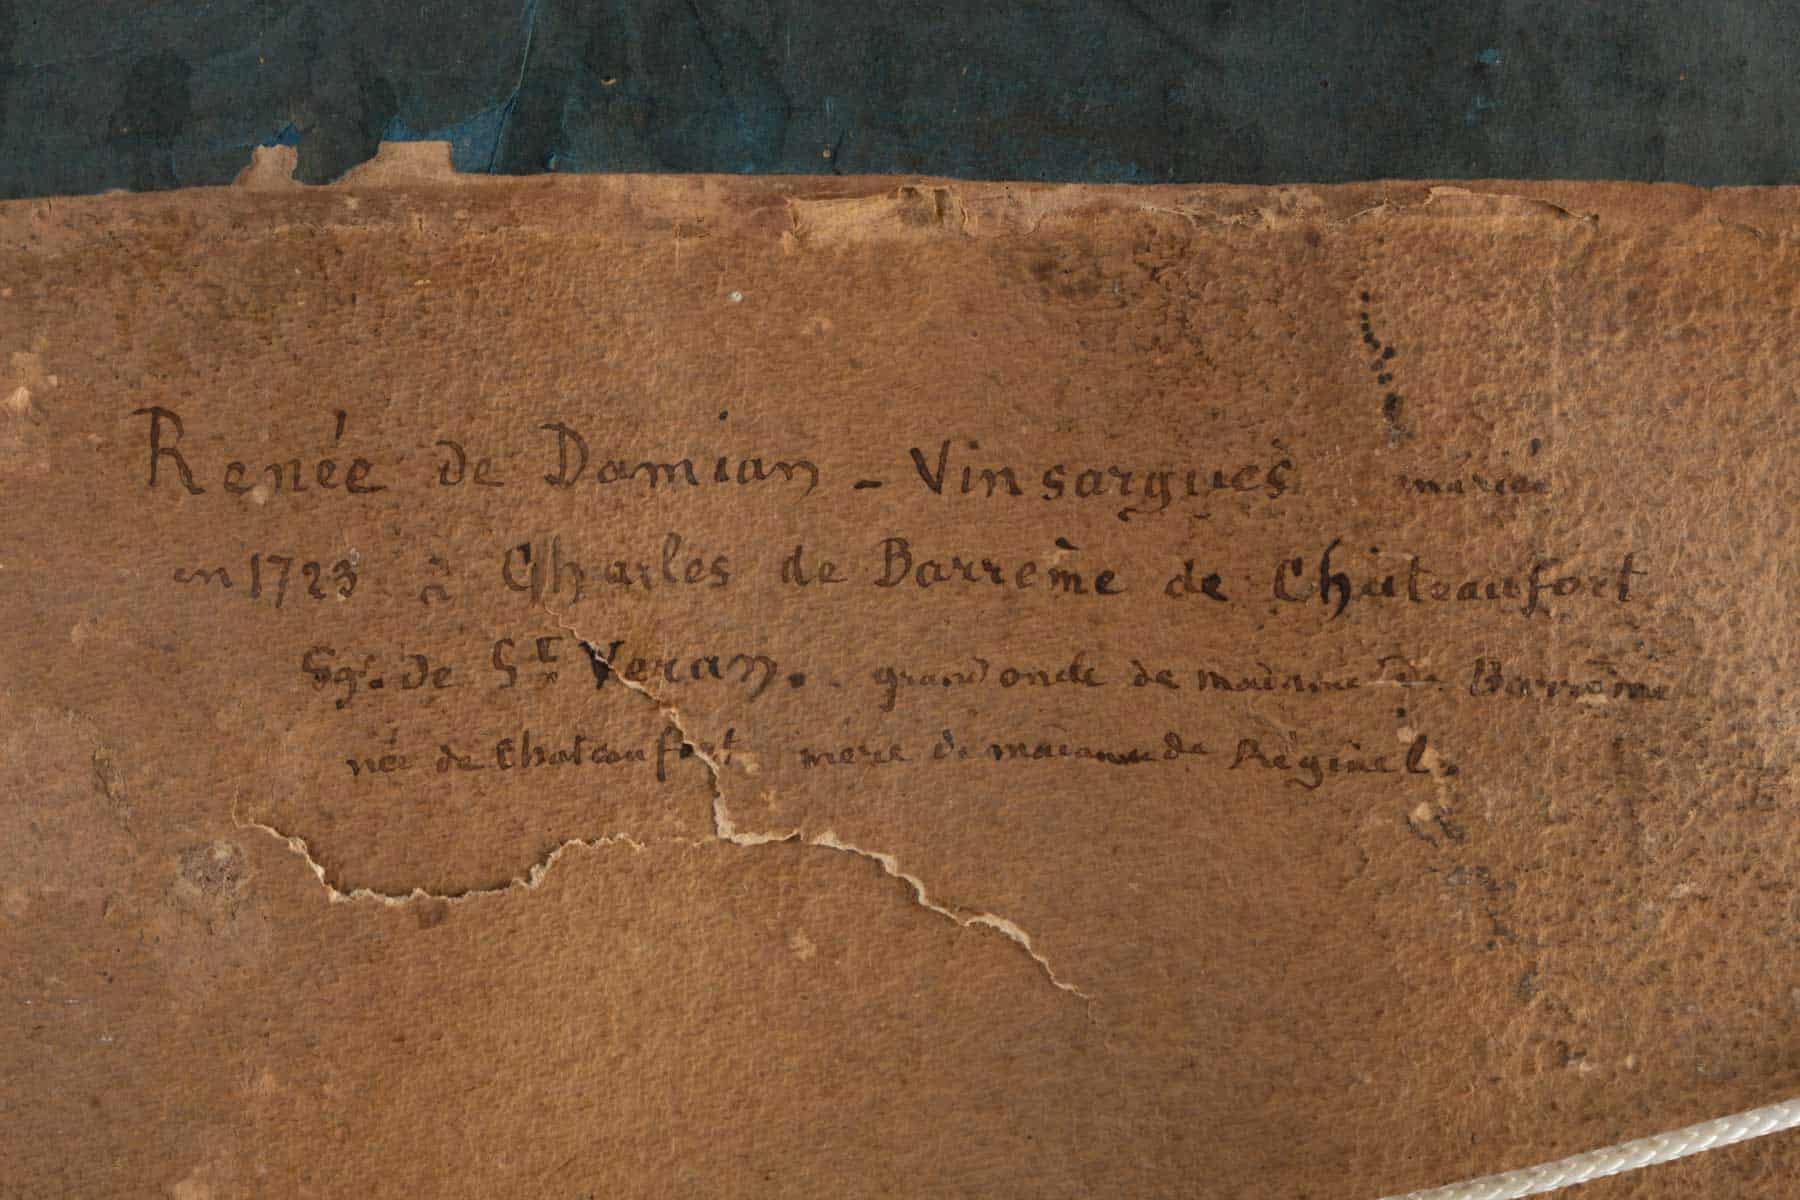 Renée de Damian - Vinsargues mariée
en 1723 à Charles de Barrème de Châteaufort
Sgr. de St Veran. grand oncle de madame de Barrème
née de Chateaufort mere de madame de Réginel.